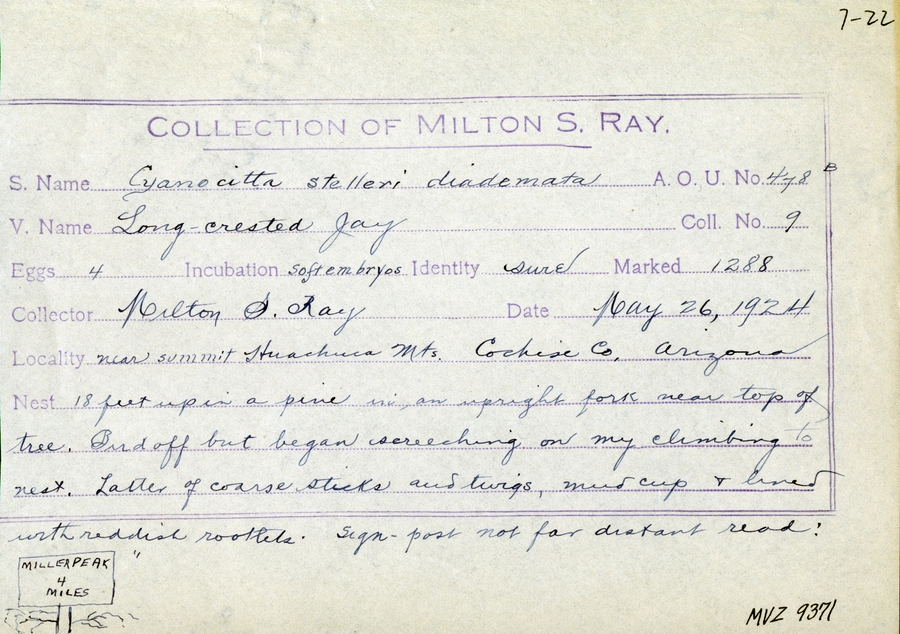 7-22
COLLECTION OF MILTON S. RAY.
S. Name Cyanocitta stelleri diademata A. O. U. No. 478 B
V. Name Long-crested Jay Coll. No. 9
Eggs 4 Incubation soft embryos Identity sure Marked 1288
Collector Milton S. Ray Date May 26, 1924
Locality near summit Huachuca Mts. Cochise Co. Arizona
Nest 18 feet up in a pine in an upright fork near top of
tree. Bird off but began screeching on my climbing to
nest. Latter of coarse sticks and twigs, mud cup & lined
with reddish rootlets. Sign-post not far distant read:
MILLER PEAK "
4
MILES
MVZ 9371